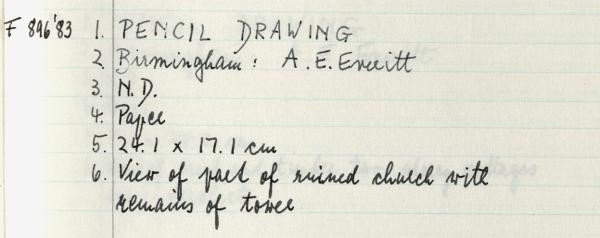 F 896'83 1. PENCIL DRAWING
2. Birmingham: A.E. Everitt
3. N.D.
4. Paper
5. 24.1 x 17.1 cm
6. View of part of ruined church with
remains of tower